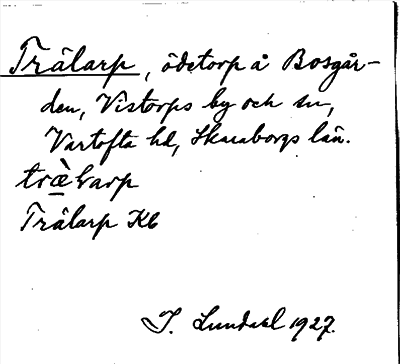 Trälarp, ödetorp å Bosgår-
den, Vistorps by och sn,
Vartofta hd, Skaraborgs län.
Trälarp Kb
I. Lundahl 1927.